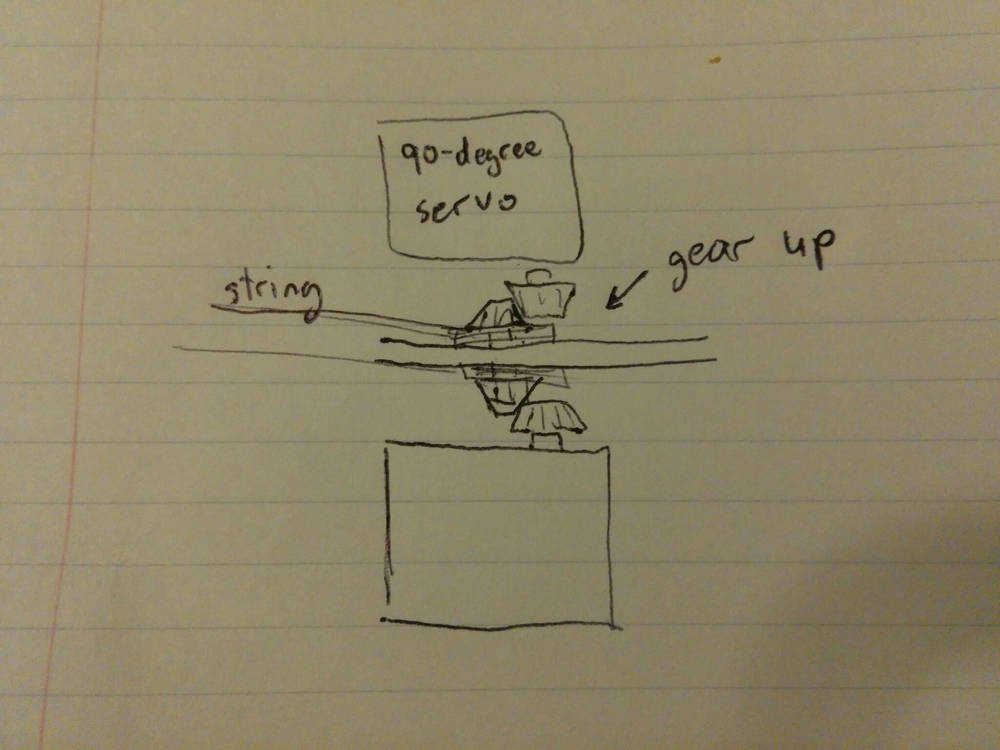 90-degree
servo
gear up
string